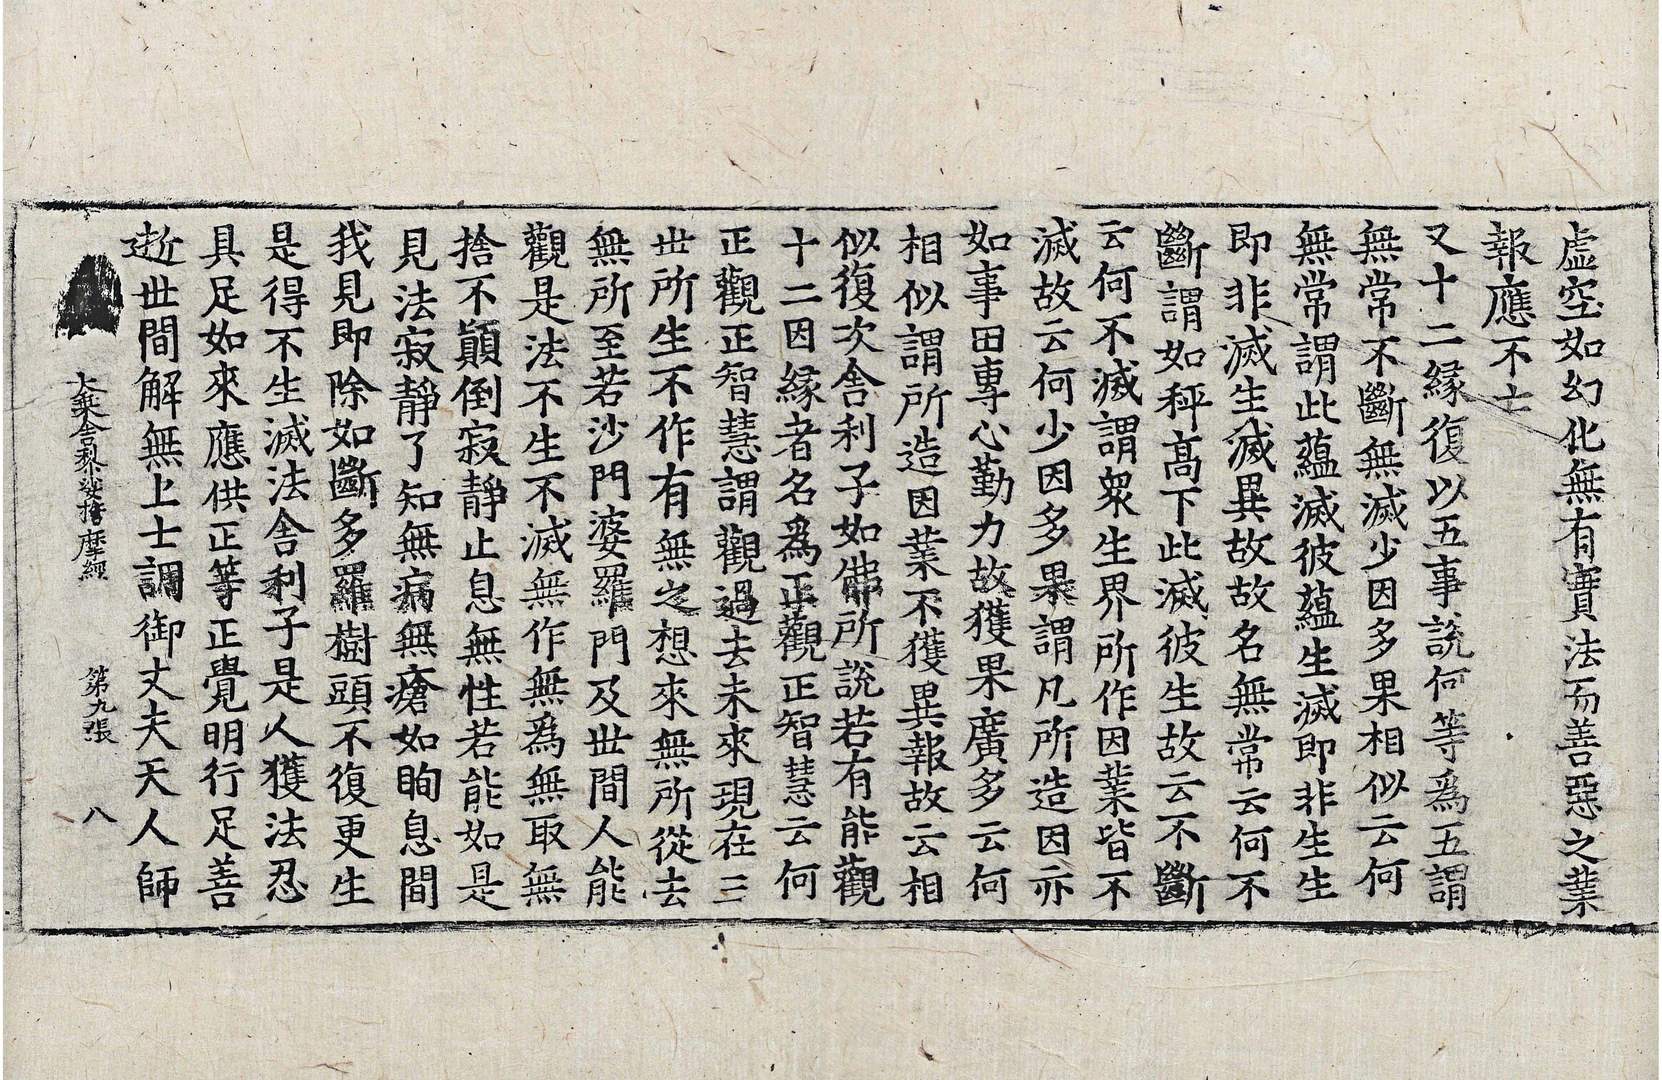 虛空如幻化無有實法而善惡之業
報應不亡
又十二緣復以五事說何等爲五謂
無常不斷無滅少因多果相似云何
無常謂此蘊滅彼蘊生滅即非生生
即非滅生滅異故故名無常云何不
斷謂如秤高下此滅彼生故云不斷
云何不滅謂衆生界所作因業皆不
滅故云何少因多果謂凡所造因亦
如事田專心勤力故獲果廣多云何
相似謂所造因業不獲異報故云相
似復次舍利子如佛所說若有能觀
十二因緣者名爲正觀正智慧云何
正觀正智慧謂觀過去未來現在三
世所生不作有無之想來無所從去
無所至若沙門婆羅門及世間人能
觀是法不生不滅無作無爲無取無
捨不顚倒寂靜止息無性若能如是
見法寂靜了知無病無瘡如眴息間
我見即除如斷多羅樹頭不復更生
是得不生滅法舍利子是人獲法忍
具足如來應供正等正覺明行足善
逝世間解無上士調御丈夫天人師
大乘舍黎娑擔摩經 第九張 八